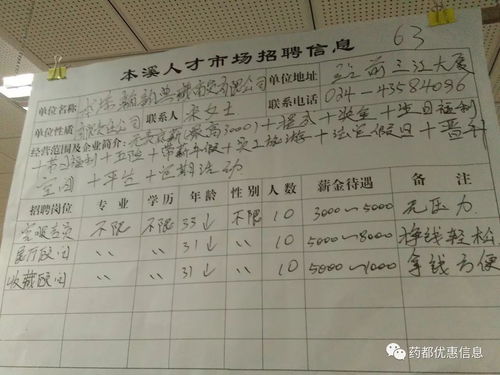 63
本溪人才市场招聘信息
单位名称 本溪 有限公司 单位地址 站前三江大厦
单位性质 有限公司 联系人 宋女士 联系电话 024-43584096
经营范围及企业简介: 无责底薪(最高3000)+提成+奖金+生日福利
+节日福利+五险+带薪年假+员工旅游+法定假日+晋升
空间+ +定期活动
招聘岗位 专业 学历 年龄 性别 人数 薪金待遇 备注
客服专员 不限 不限 35↓ 不限 10 3000~5000 无压力
医疗顾问 〃 〃 31↓ 〃 10 5000~8000 挣钱轻松
收藏顾问 〃 〃 31↓ 〃 10 5000~1000 拿钱方便
药都优惠信息